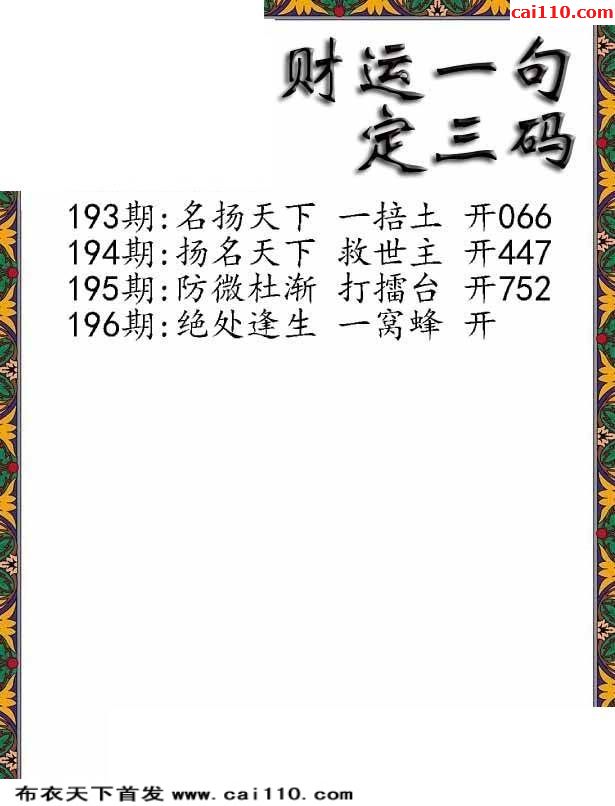 cai110.com
财运一句
定三码
193期:名扬天下 一掊土 开066
194期:扬名天下 救世主 开447
195期:防微杜渐 打擂台 开752
196期:绝处逢生 一窝蜂 开
布衣天下首发 www.cai110.com